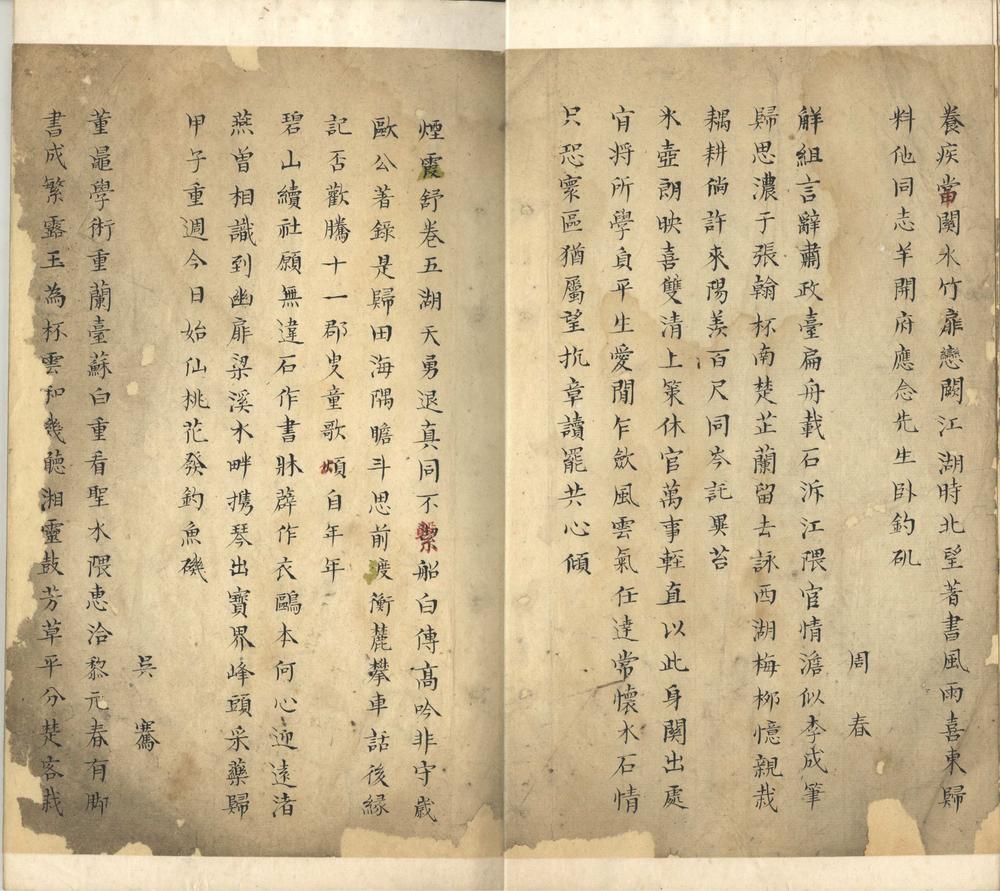 養疾當關水竹扉戀闕江湖時北望著書風雨喜東歸
料他同志羊開府應念先生卧釣矶
周春
觧組言辭肅政臺扁舟載石泝江隈官情澹似李成筆
歸思濃于張翰杯南楚芷蘭留去詠西湖梅柳憶親栽
耦耕倘許來陽羨百尺同岑託異苔
氷壺朗映喜雙清上策休官萬事輕直以此身関出處
肯將所學負平生愛閒乍斂風雲氣任達常懷水石情
只恐寰區猶屬望抗章讀罷共心傾
煙霞舒卷五湖天勇退真同不繫船白傅高吟非守歲
歐公著錄是歸田海隅瞻斗思前度衡麓攀車話後緣
記否歡騰十一郡叟童歌頌自年年
碧山續社願無違石作書牀薜作衣鷗本何心迎遠渚
燕曾相識到幽扉梁溪水畔携琴出寶界峰頭采藥歸
甲子重週今日始仙桃花發釣魚磯
吳騫
董鼂學術重蘭臺蘇白重看聖水隈惠洽黎元春有脚
書成繁露玉為杯雲和幾聽湘靈鼓芳草平分楚客栽